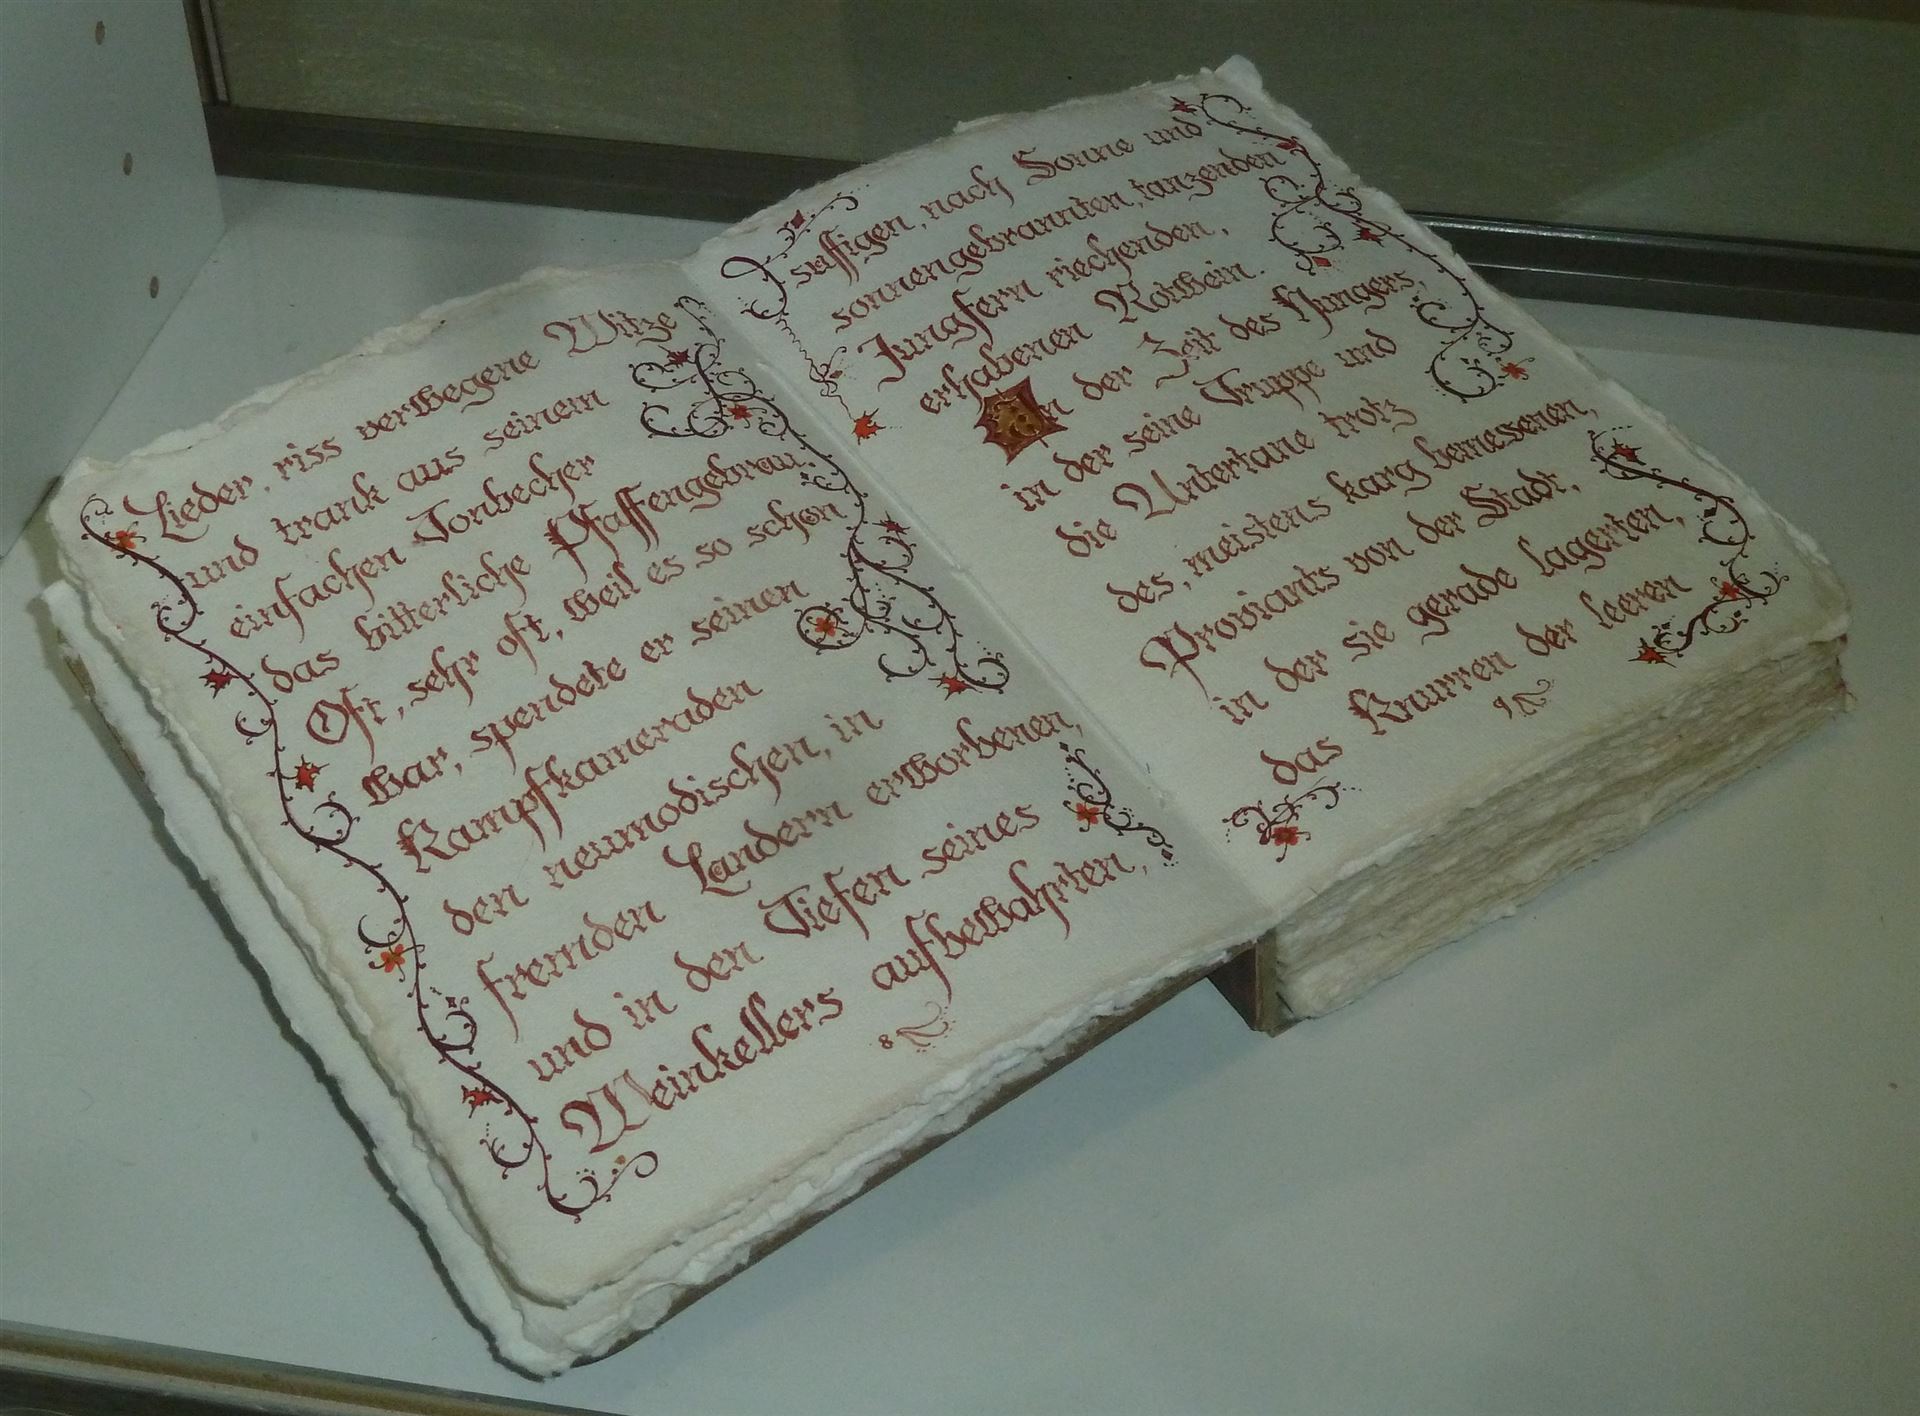 Lieder, riss verwegene Witze
und trank aus seinem
einfachen Tonbecher
das bitterliche Pfaffengebräu.
Oft, sehr oft, weil es so schön
war, spendete er seinen
Kampfkameraden
den neumodischen, in
fremden Ländern erworbenen,
und in den Tiefen seines
Weinkellers aufbewahrten,
8
süffigen, nach Sonne und
sonnengebrannten, tanzenden
Jungfern riechenden,
erhabenen Rotwein.
In der Zeit des Hungers,
in der seine Truppe und
die Untertane trotz
des, meistens karg bemessenen,
Proviants von der Stadt,
in der sie gerade lagerten,
das Knurren der leeren
9